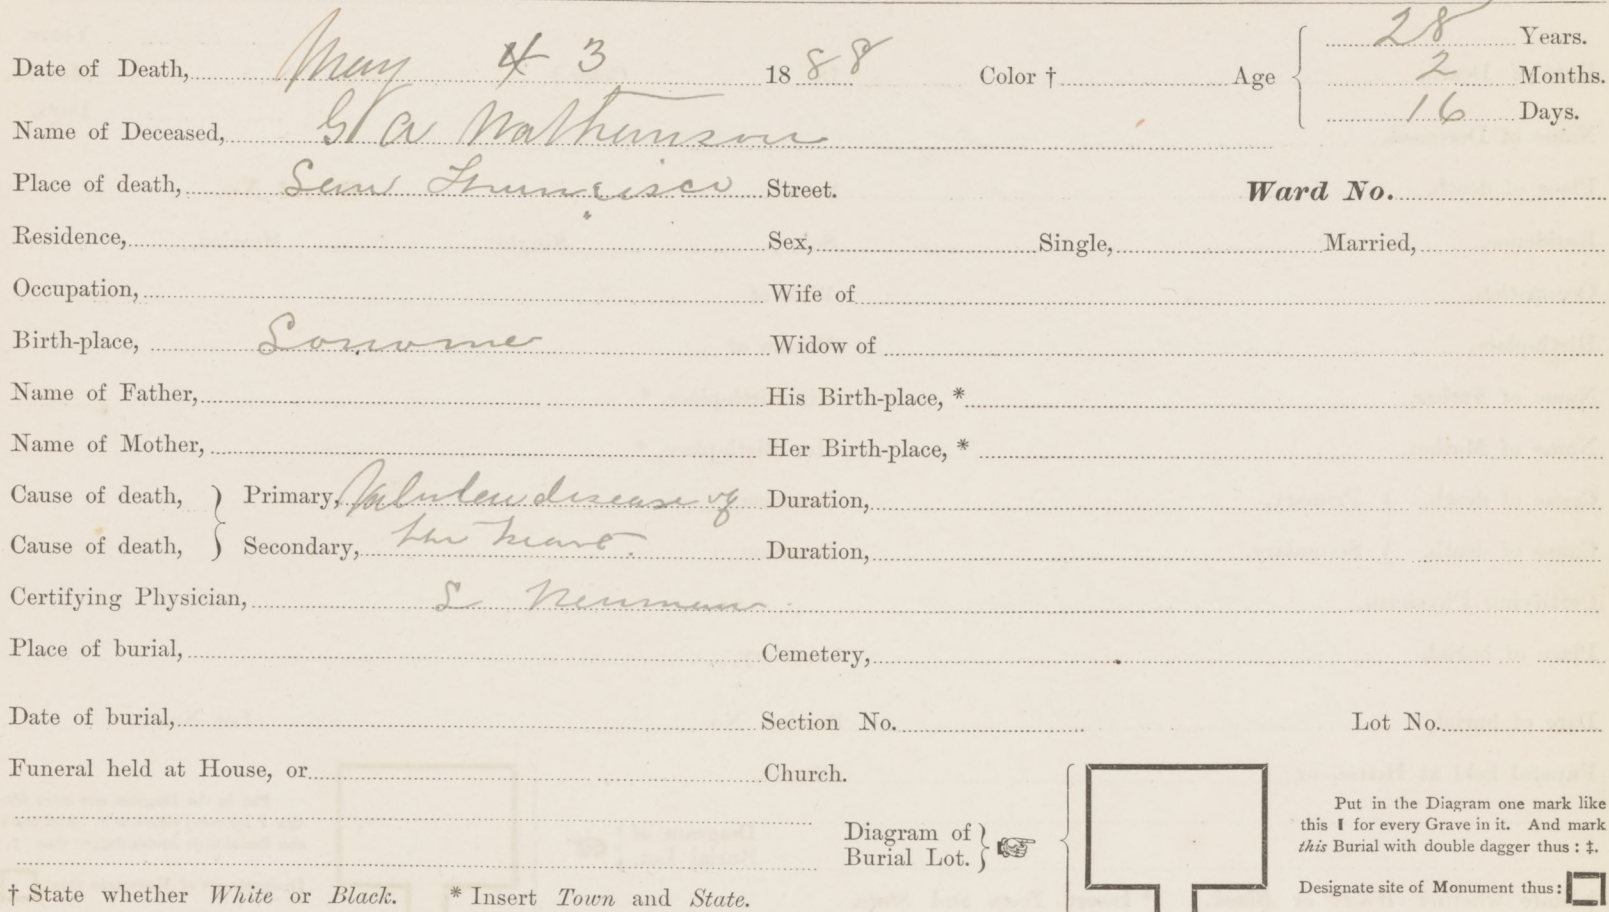 Date of Death, May 4 3 1888 Color † Age 28 Years.
2 Months.
16 Days.
Name of Deceased, G A Nathanson
Place of death, San Francisco Street. Ward No.
Residence, Sex, Single, Married,
Occupation, Wife of
Birth-place, Sonoma Widow of
Name of Father, His Birth-place, *
Name of Mother, Her Birth-place, *
Cause of death, } Primary, Valvular disease of Duration,
Cause of death, } Secondary, the heart. Duration,
Certifying Physician, L Neumann
Place of burial, Cemetery,
Date of burial, Section No. Lot No.
Funeral held at House, or Church.
Diagram of
Burial Lot. }
Put in the Diagram one mark like
this I for every Grave in it. And mark
this Burial with double dagger thus : ‡.
Designate site of Monument thus:
† State whether White or Black. * Insert Town and State.